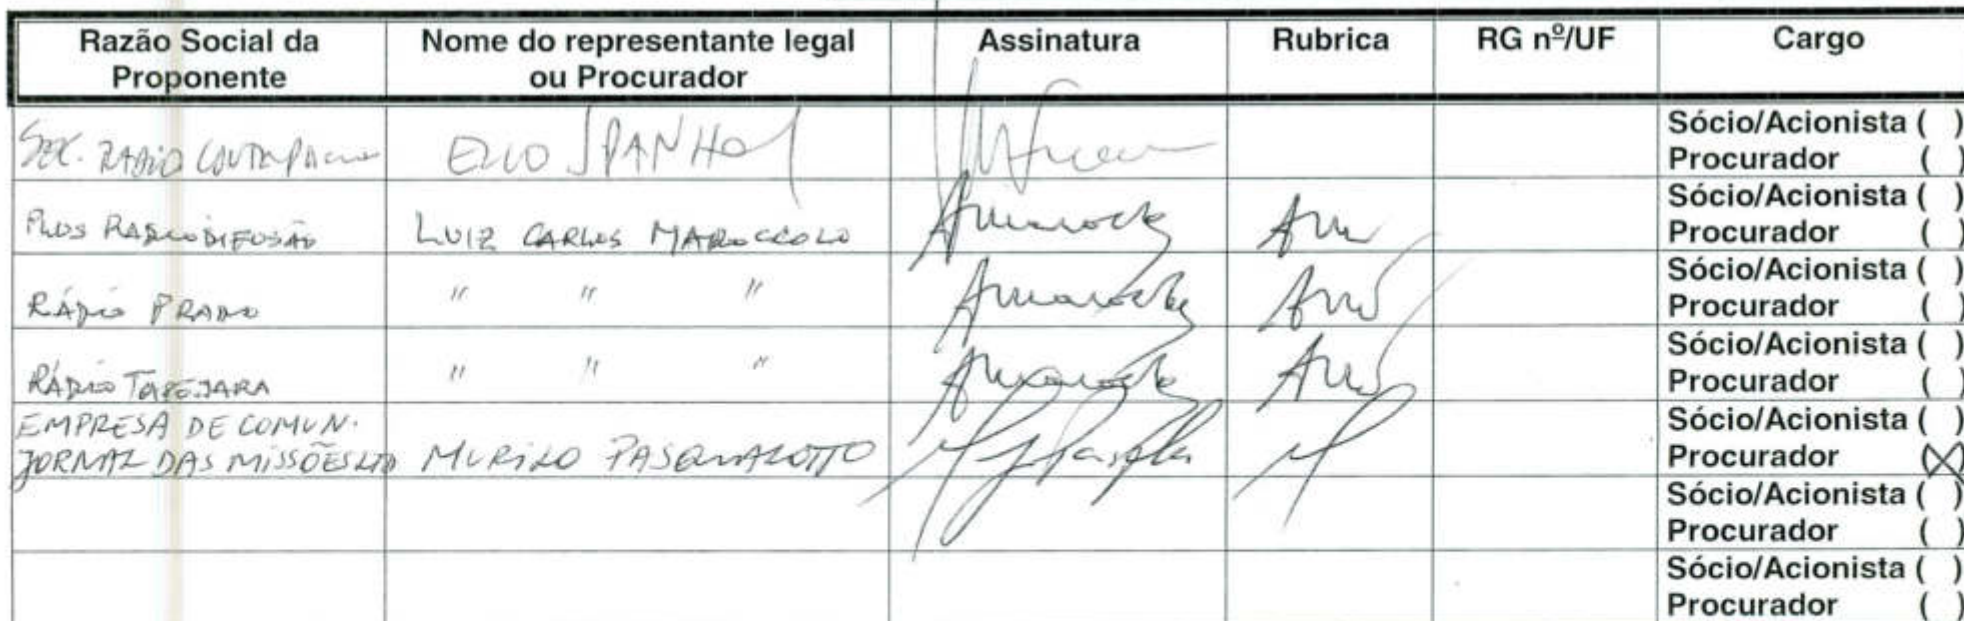 Razão Social da Proponente Nome do representante legal ou Procurador Assinatura Rubrica RG nº/UF Cargo
ELIO SPANHOL Sócio/Acionista ( )
Procurador ( )
PLUS RADIODIFUSÃO LUIZ CARLOS MAROCCOLO Sócio/Acionista ( )
Procurador ( )
RÁDIO PRADO " " " Sócio/Acionista ( )
Procurador ( )
RÁDIO TAPEJARA " " " Sócio/Acionista ( )
Procurador ( )
EMPRESA DE COMUN. Sócio/Acionista ( )
JORNAL DAS MISSÕES LTD MURILO PASQUALOTTO Procurador (X)
Sócio/Acionista ( )
Procurador ( )
Sócio/Acionista ( )
Procurador ( )